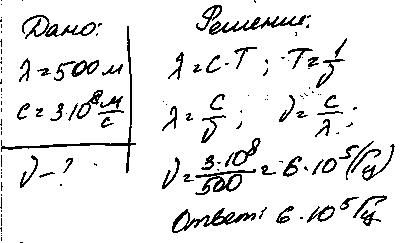 Дано:
λ = 500 м
c = 3·10⁸ м/с
ν – ?
Решение:
λ = c·T ; T = 1/ν
λ = c/ν ; ν = c/λ ;
ν = 3·10⁸/500 = 6·10⁵ (Гц)
Ответ: 6·10⁵ Гц